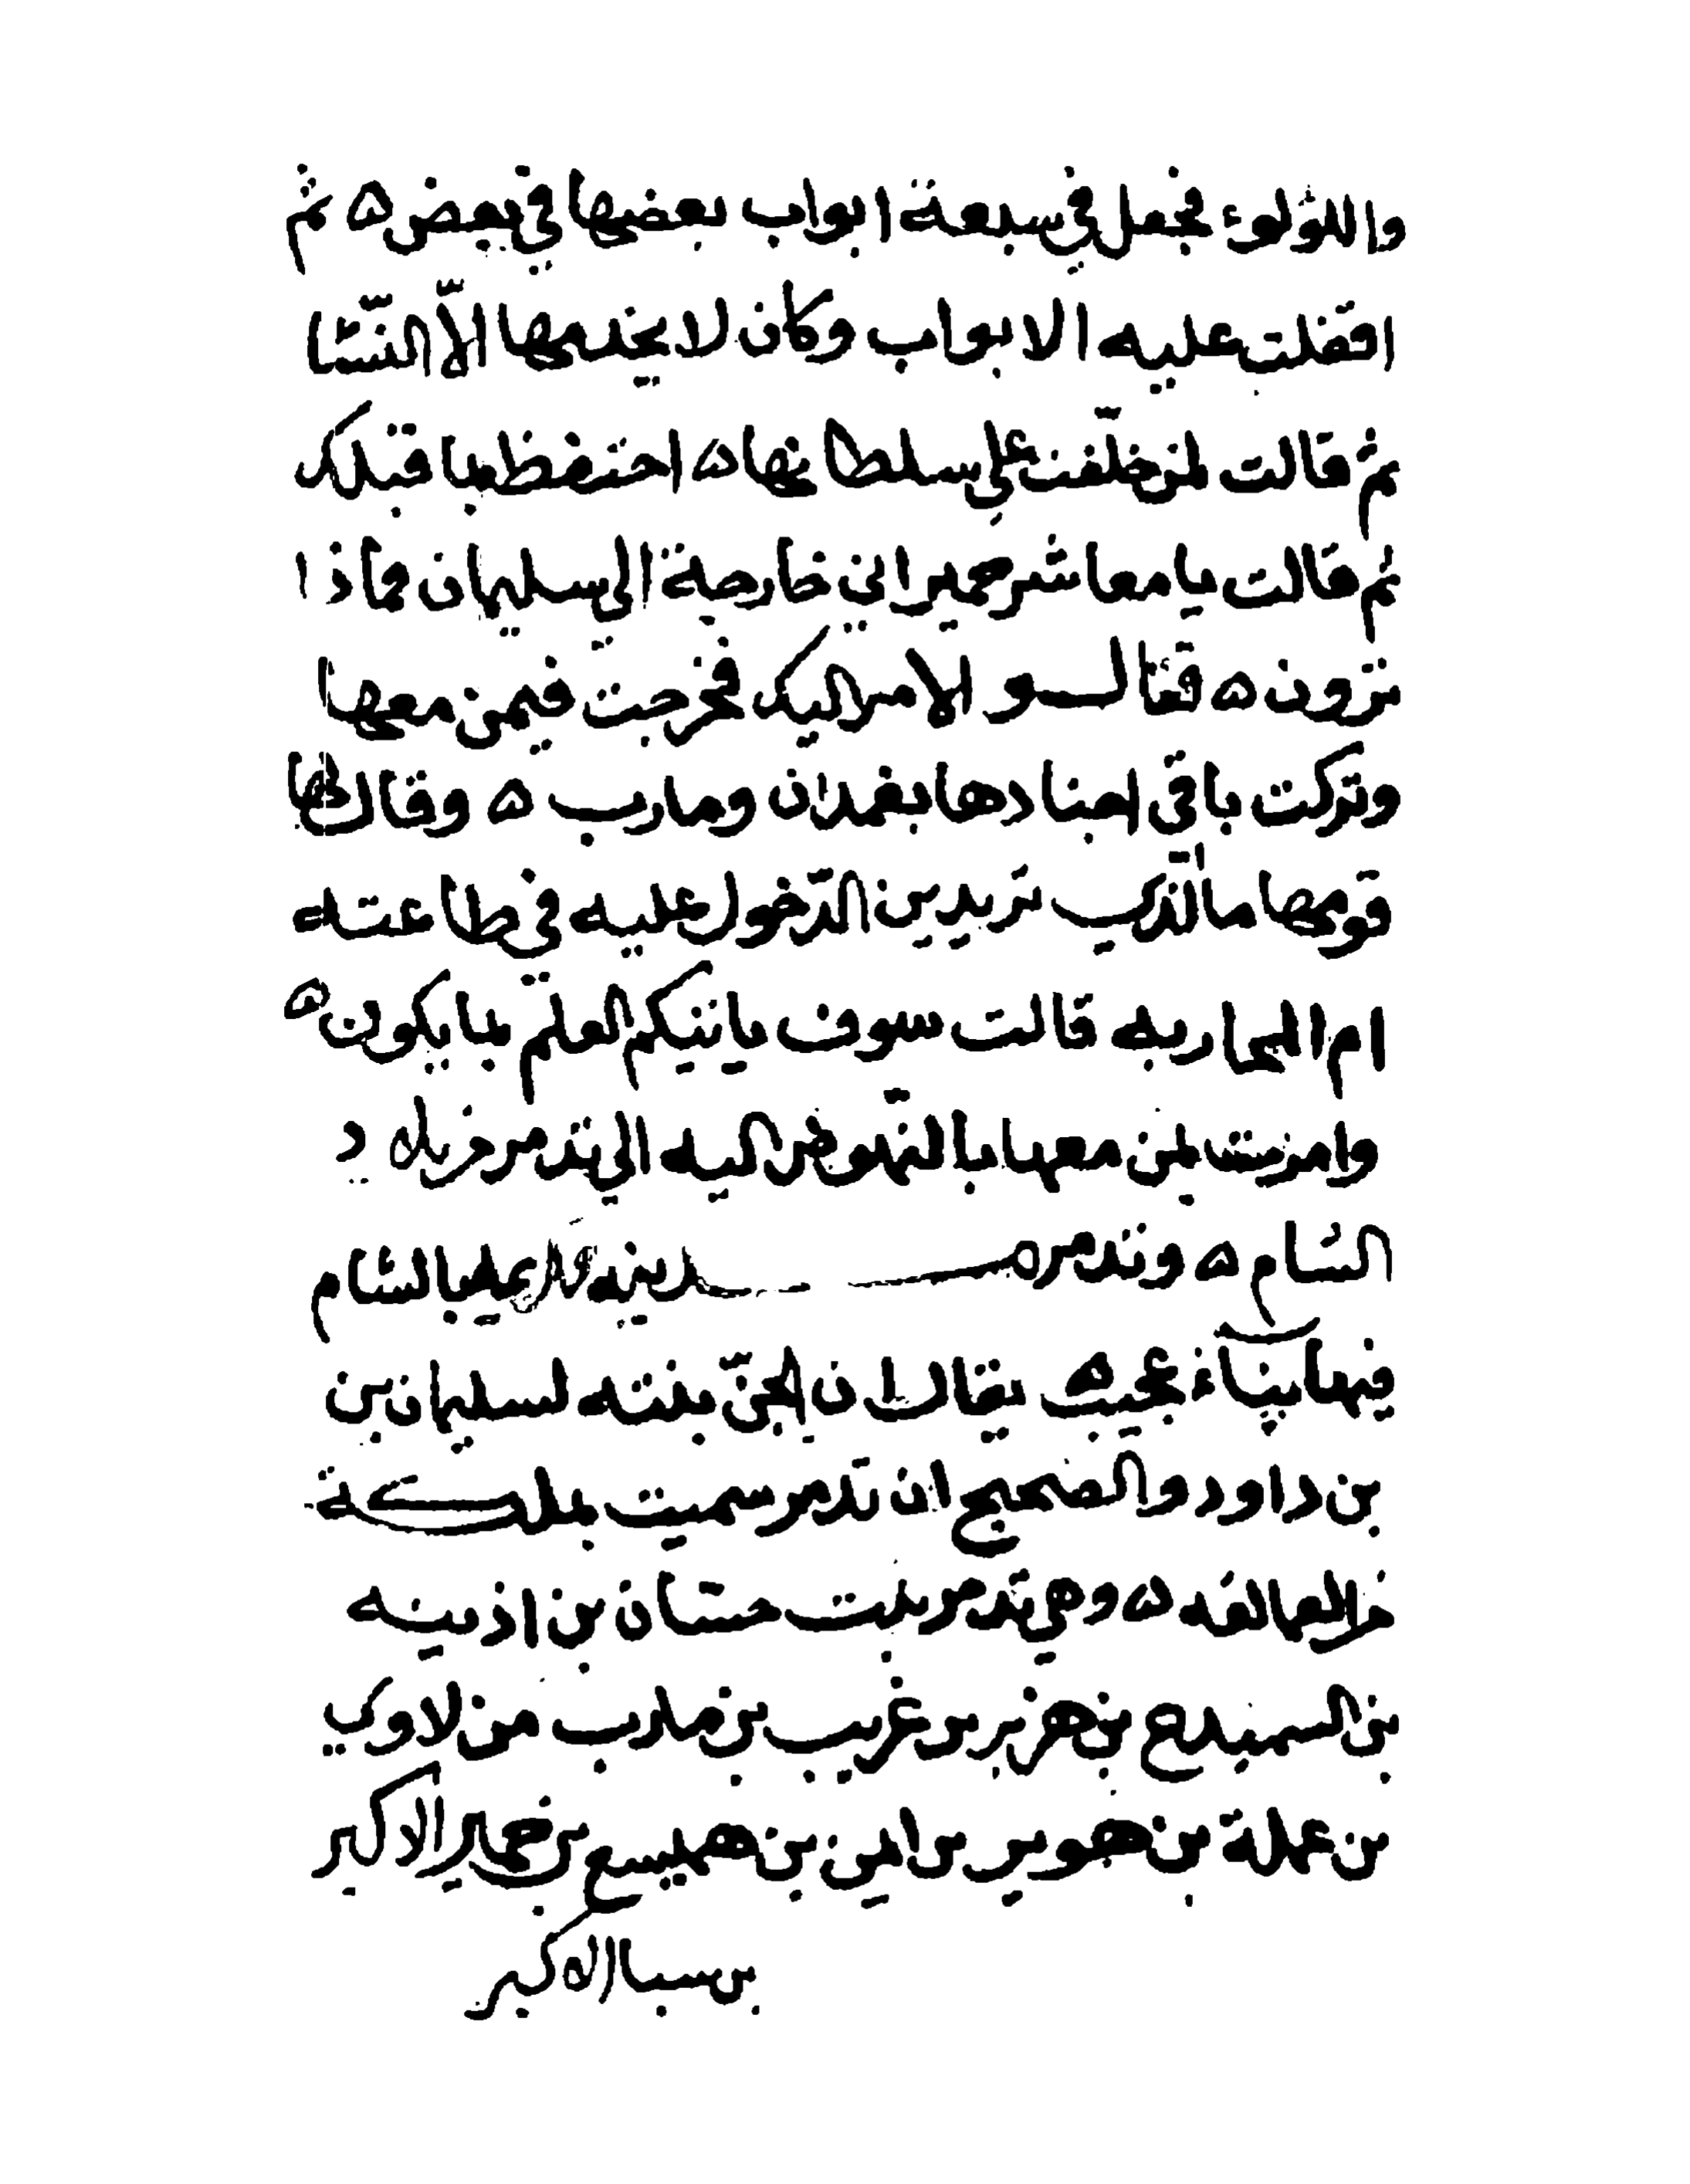 واللؤلوء فجعل في سبعة ابواب بعضها في بعض ۵ ثم
اقفلت عليه الابواب وكان لا يخدمها الاّ النّسا
ثم قالت لمن خلّفت علي سلطانها ۵ احتفظ بما قبلك
ثم قالت يا معاشر حمير اني خارجة الي سليمان فماذا
ترون ۵ فقالو الامر اليك فخرجت فيمن معها
وتركت باقي اجنادها بغمدان ومارب ۵ وقال لها
قومها ما الّذي تريدين الدّخول عليه في طاعته
ام المحاربه قالت سوف ياتيكم العلم بما يكون ۵
وامرت لمن معها بالنّهوض اليه الي تدمر من بلاد
الشام ۵ وتدمر مدينه بالشام
فيها بناء عجيب ۵ يقال ان الجنّ بنته لسليمان بن
بن داود والصحيح ان تدمر سميت بملكة
من العمالقه ۵ وهي تدمر بنت حسّان بن اذينه
بن السميدع بن هزبر بن عريب بن مارب من لاوي
بن عملة بن هوبر بن ايمن بن هميسع بن حمير الاكبر
بن سبا الاكبر